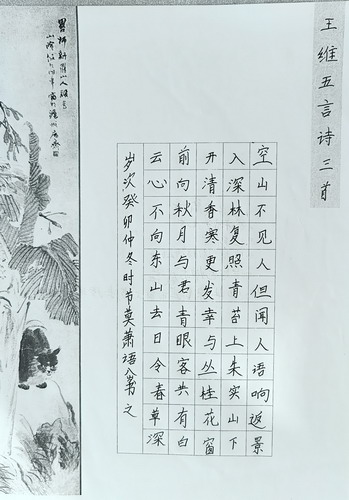 王维五言诗三首
空山不见人但闻人语响返景
入深林复照青苔上朱实山下
开清香寒更发幸与丛桂花窗
前向秋月与君青眼客共有白
云心不向东山去日令春草深
岁次癸卯仲冬时节莫萧语书之